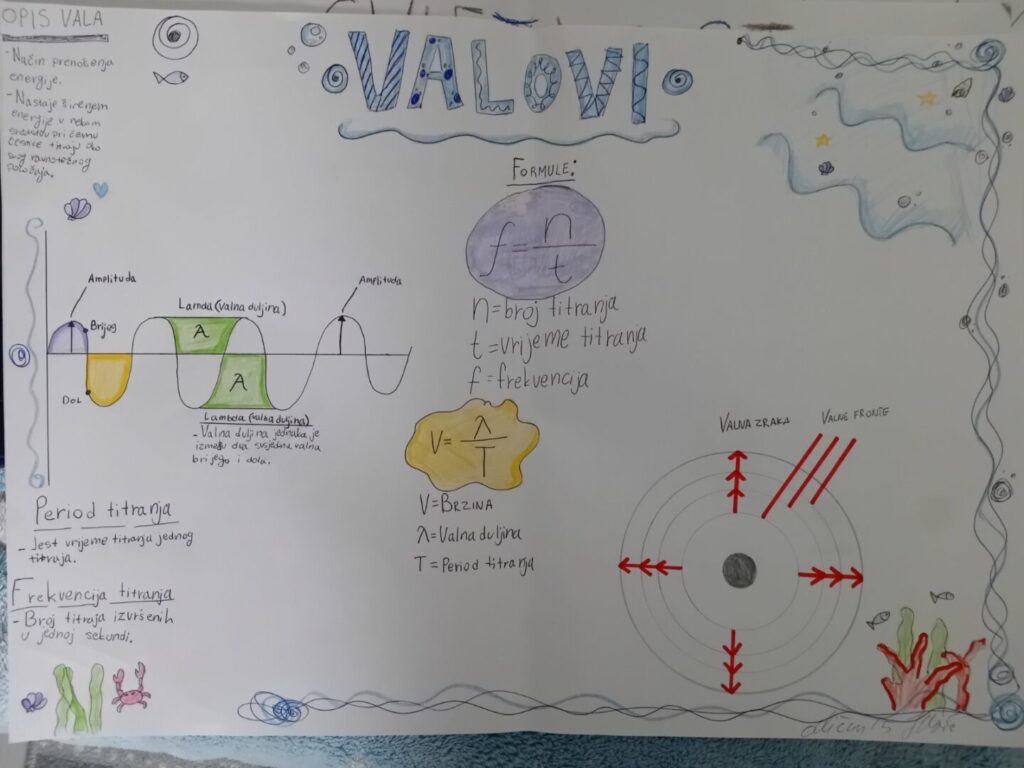 OPIS VALA
- Način prenošenja
energije.
- Nastaje širenjem
energije u nekom
sredstvu pri čemu
čestice titraju oko
svog ravnotežnog
položaja.
VALOVI
FORMULE:
f = n/t
n = broj titranja
t = vrijeme titranja
f = frekvencija
V = λ/T
V = BRZINA
λ = Valna duljina
T = Period titranja
Amplituda
Brijeg
Dol
Lamda (Valna duljina)
A
A
Amplituda
Lambda (valna duljina)
- Valna duljina jednaka je
između dva susjedna valna
brijega i dola.
Period titranja
- Jest vrijeme titranja jednog
titraja.
Frekvencija titranja
- Broj titraja izvršenih
u jednoj sekundi.
VALNA ZRAKA
VALNE FRONTE